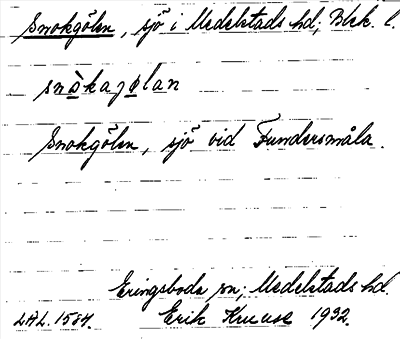 Snokgölen, sjö i Medelstads hd; Blek. l.
snòkagølan
Snokgölen, sjö vid Fundersmåla.
Eringsboda sn; Medelstads hd.
LAL. 1584. Erik Kruuse 1932.